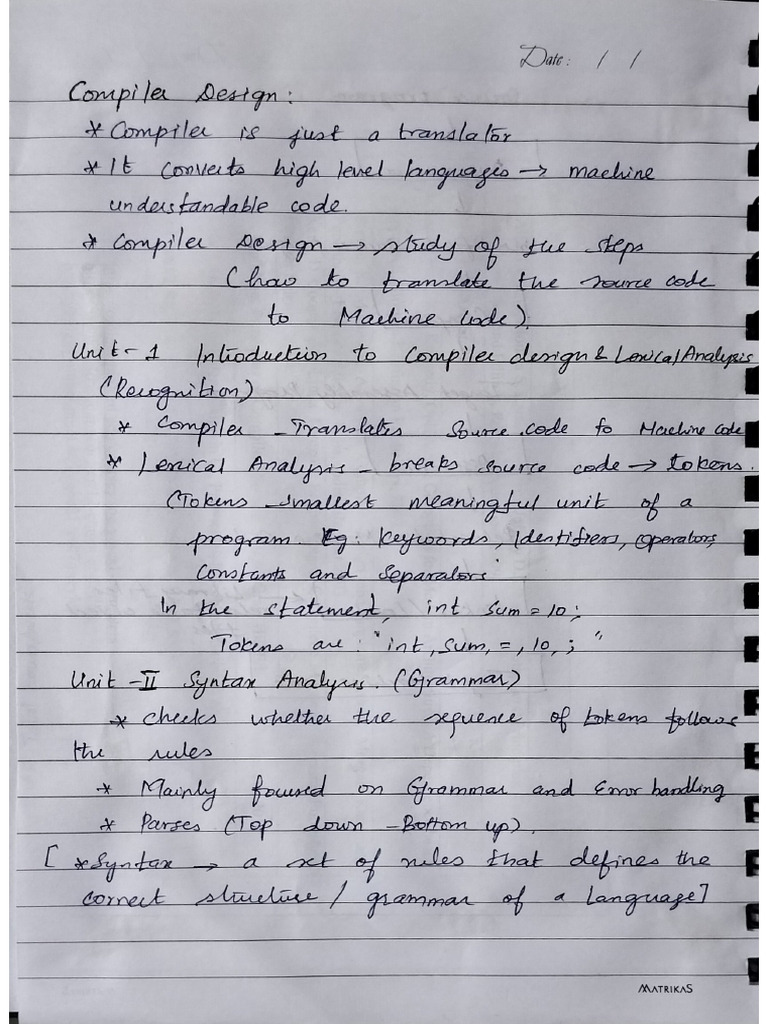 Date: / /
Compiler Design:
* Compiler is just a translator
* It converts high level languages → machine
understandable code.
* Compiler Design → study of the steps
(how to translate the source code
to Machine Code).
Unit-1 Introduction to Compiler design & Lexical Analysis
(Recognition)
* Compiler - Translates Source code to Machine code
* Lexical Analysis - breaks source code → tokens.
(Tokens - smallest meaningful unit of a
program. Eg: Keywords, Identifiers, Operators,
Constants and Separators
In the statement, int sum = 10;
Tokens are: "int, sum, =, 10, ; "
Unit - II Syntax Analysis. (Grammar)
* checks whether the sequence of tokens follows
the rules
* Mainly focused on Grammar and Error handling
* Parses (Top down - Bottom up).
[ * Syntax → a set of rules that defines the
correct structure / grammar of a language]
MATRIKAS